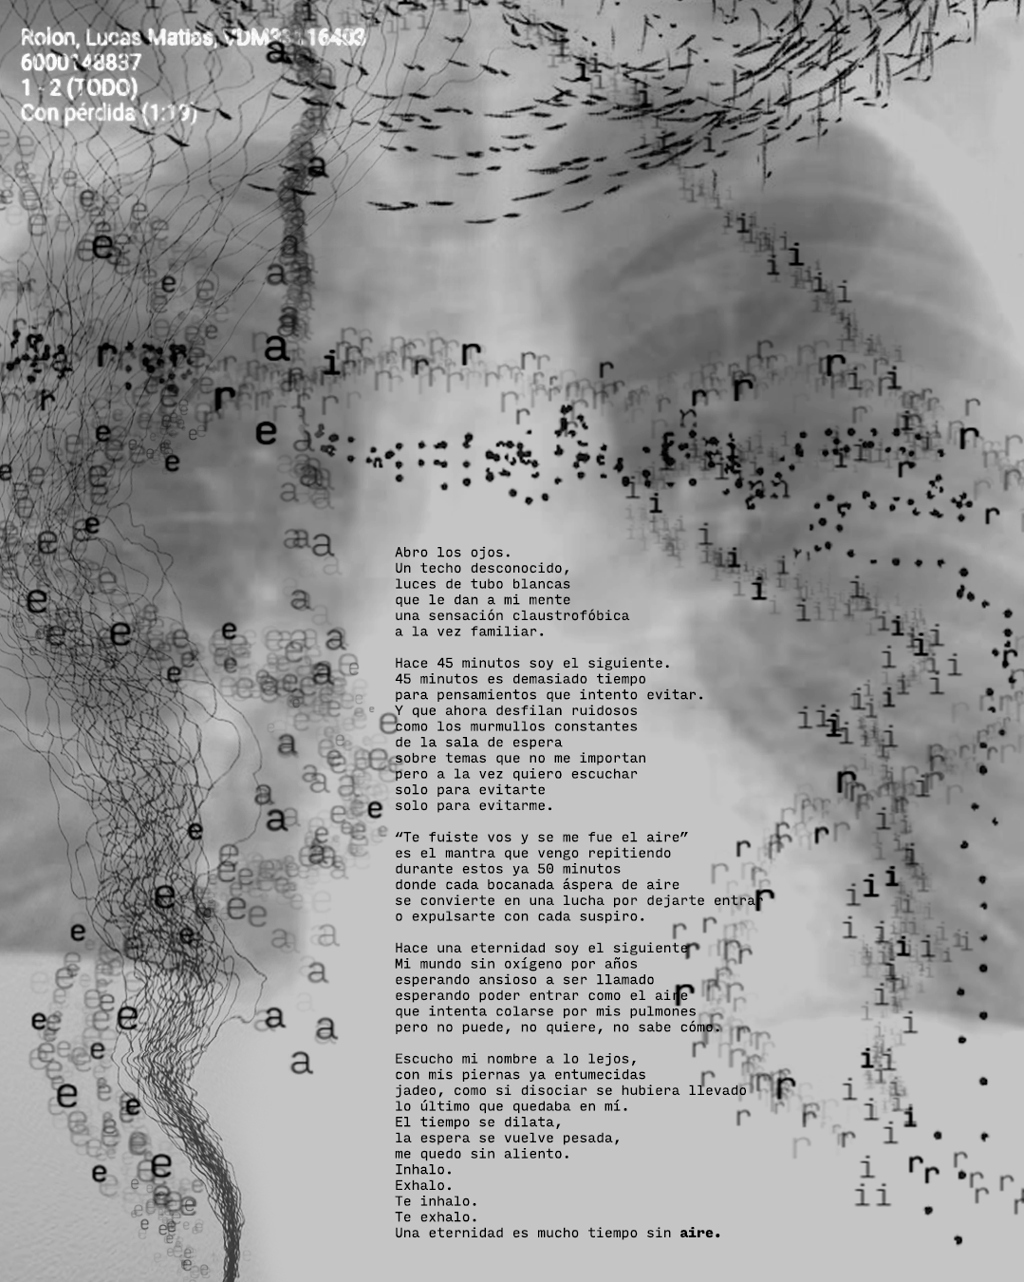 Rolon, Lucas Matias,
6000148837
1 - 2 (TODO)
Con pérdida (1:19)
Abro los ojos.
Un techo desconocido,
luces de tubo blancas
que le dan a mi mente
una sensación claustrofóbica
a la vez familiar.
Hace 45 minutos soy el siguiente.
45 minutos es demasiado tiempo
para pensamientos que intento evitar.
Y que ahora desfilan ruidosos
como los murmullos constantes
de la sala de espera
sobre temas que no me importan
pero a la vez quiero escuchar
solo para evitarte
solo para evitarme.
“Te fuiste vos y se me fue el aire”
es el mantra que vengo repitiendo
durante estos ya 50 minutos
donde cada bocanada áspera de aire
se convierte en una lucha por dejarte entrar
o expulsarte con cada suspiro.
Hace una eternidad soy el siguiente
Mi mundo sin oxígeno por años
esperando ansioso a ser llamado
esperando poder entrar como el aire
que intenta colarse por mis pulmones
pero no puede, no quiere, no sabe cómo.
Escucho mi nombre a lo lejos,
con mis piernas ya entumecidas
jadeo, como si disociar se hubiera llevado
lo último que quedaba en mí.
El tiempo se dilata,
la espera se vuelve pesada,
me quedo sin aliento.
Inhalo.
Exhalo.
Te inhalo.
Te exhalo.
Una eternidad es mucho tiempo sin aire.